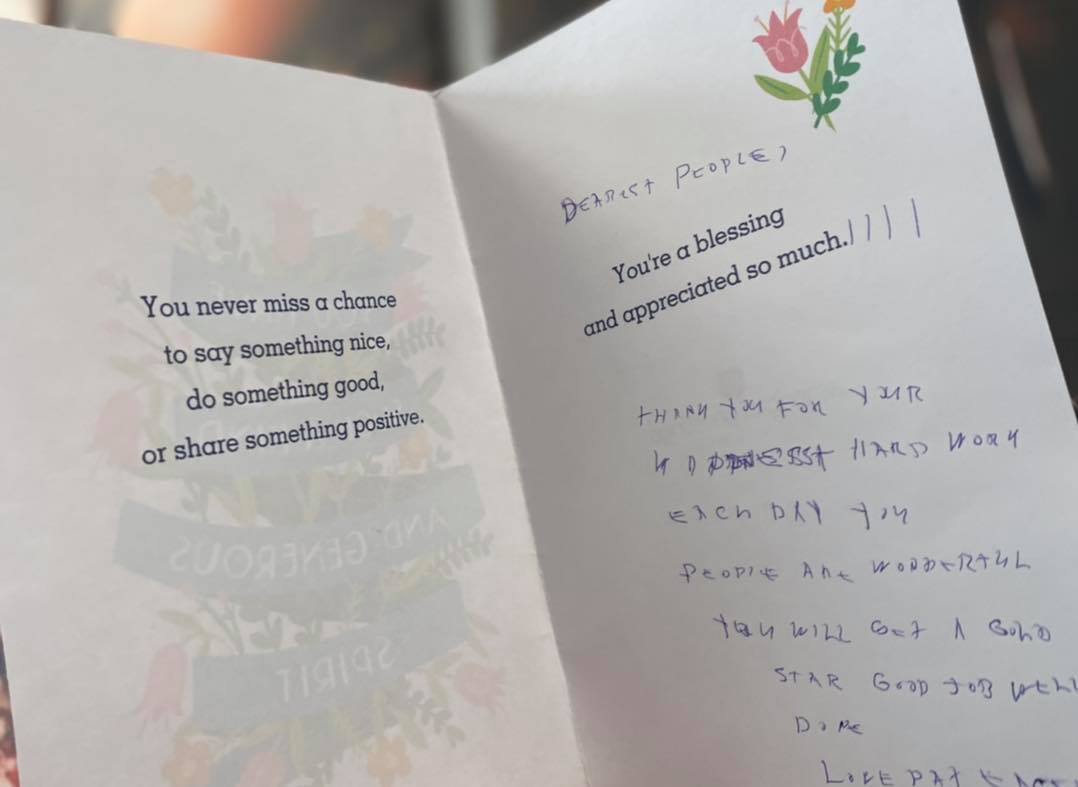 You never miss a chance
to say something nice,
do something good,
or share something positive.
AND GENEROUS
SPIRIT
DEAREST PEOPLE,
You're a blessing
and appreciated so much.
THANK YOU FOR YOUR
HARD WORK
EACH DAY YOU
PEOPLE ARE WONDERFULL
YOU WILL GET A GOLD
STAR GOOD JOB WELL
DONE
LOVE PAT